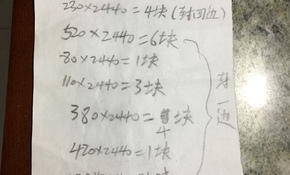 230×2440=4块(封四边)
520×2440=6块
80×2440=1块
110×2440=3块
380×2440=4块
420×2440=1块
封一边